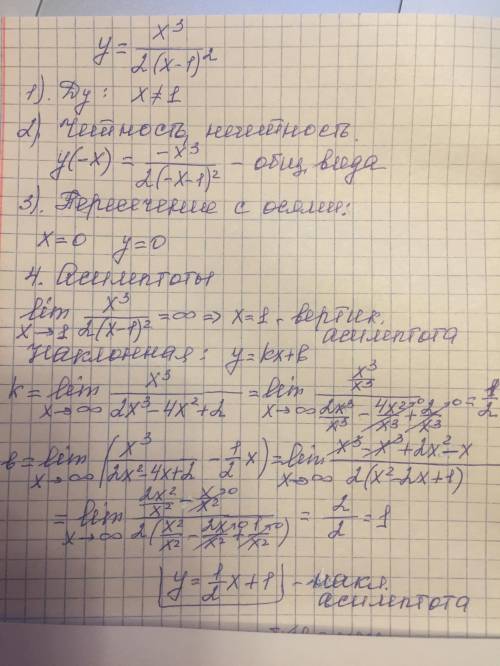 y = x³ / 2(x-1)²
1). Dy: x ≠ 1
2) Читность, нечитность.
y(-x) = -x³ / 2(-x-1)² - общ. вида
3). Пересечение с осями:
x=0 y=0
4. Асимптоты
lim x→1 x³ / 2(x-1)² = ∞ ⇒ x=1 - вертик. асимптота
Наклонная: y=kx+b
k = lim x→∞ x³ / 2x³-4x²+2 = lim x→∞ (x³/x³) / (2x³/x³ - 4x²/x³ →0 + 2/x³ →0) = 1/2
b = lim x→∞ (x³ / 2x²-4x+2 - 1/2 x) = lim x→∞ x³-x³+2x²-x / 2(x²-2x+1)
= lim x→∞ (2x²/x² - x/x² →0) / 2(x²/x² - 2x/x² →0 + 1/x² →0) = 2/2 = 1
y = 1/2 x+1 - накл. асимптота